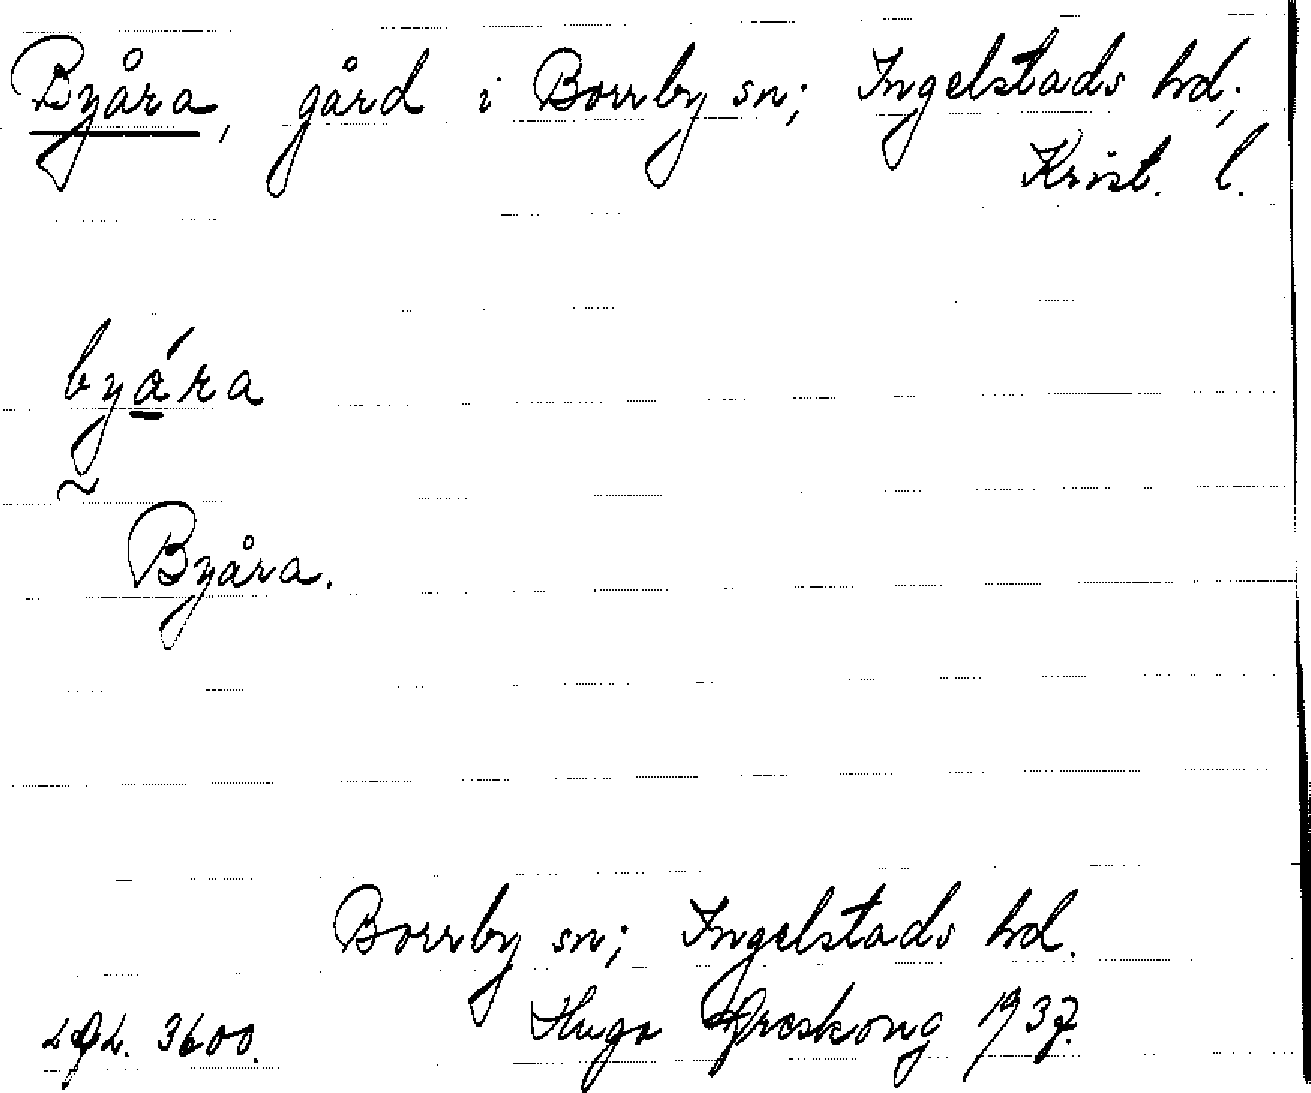 Byåra, gård i Borrby sn; Ingelstads hd;
Krist. l.
byára
~
Byåra.
Borrby sn; Ingelstads hd.
3600. Hugo Areskoug 1937.